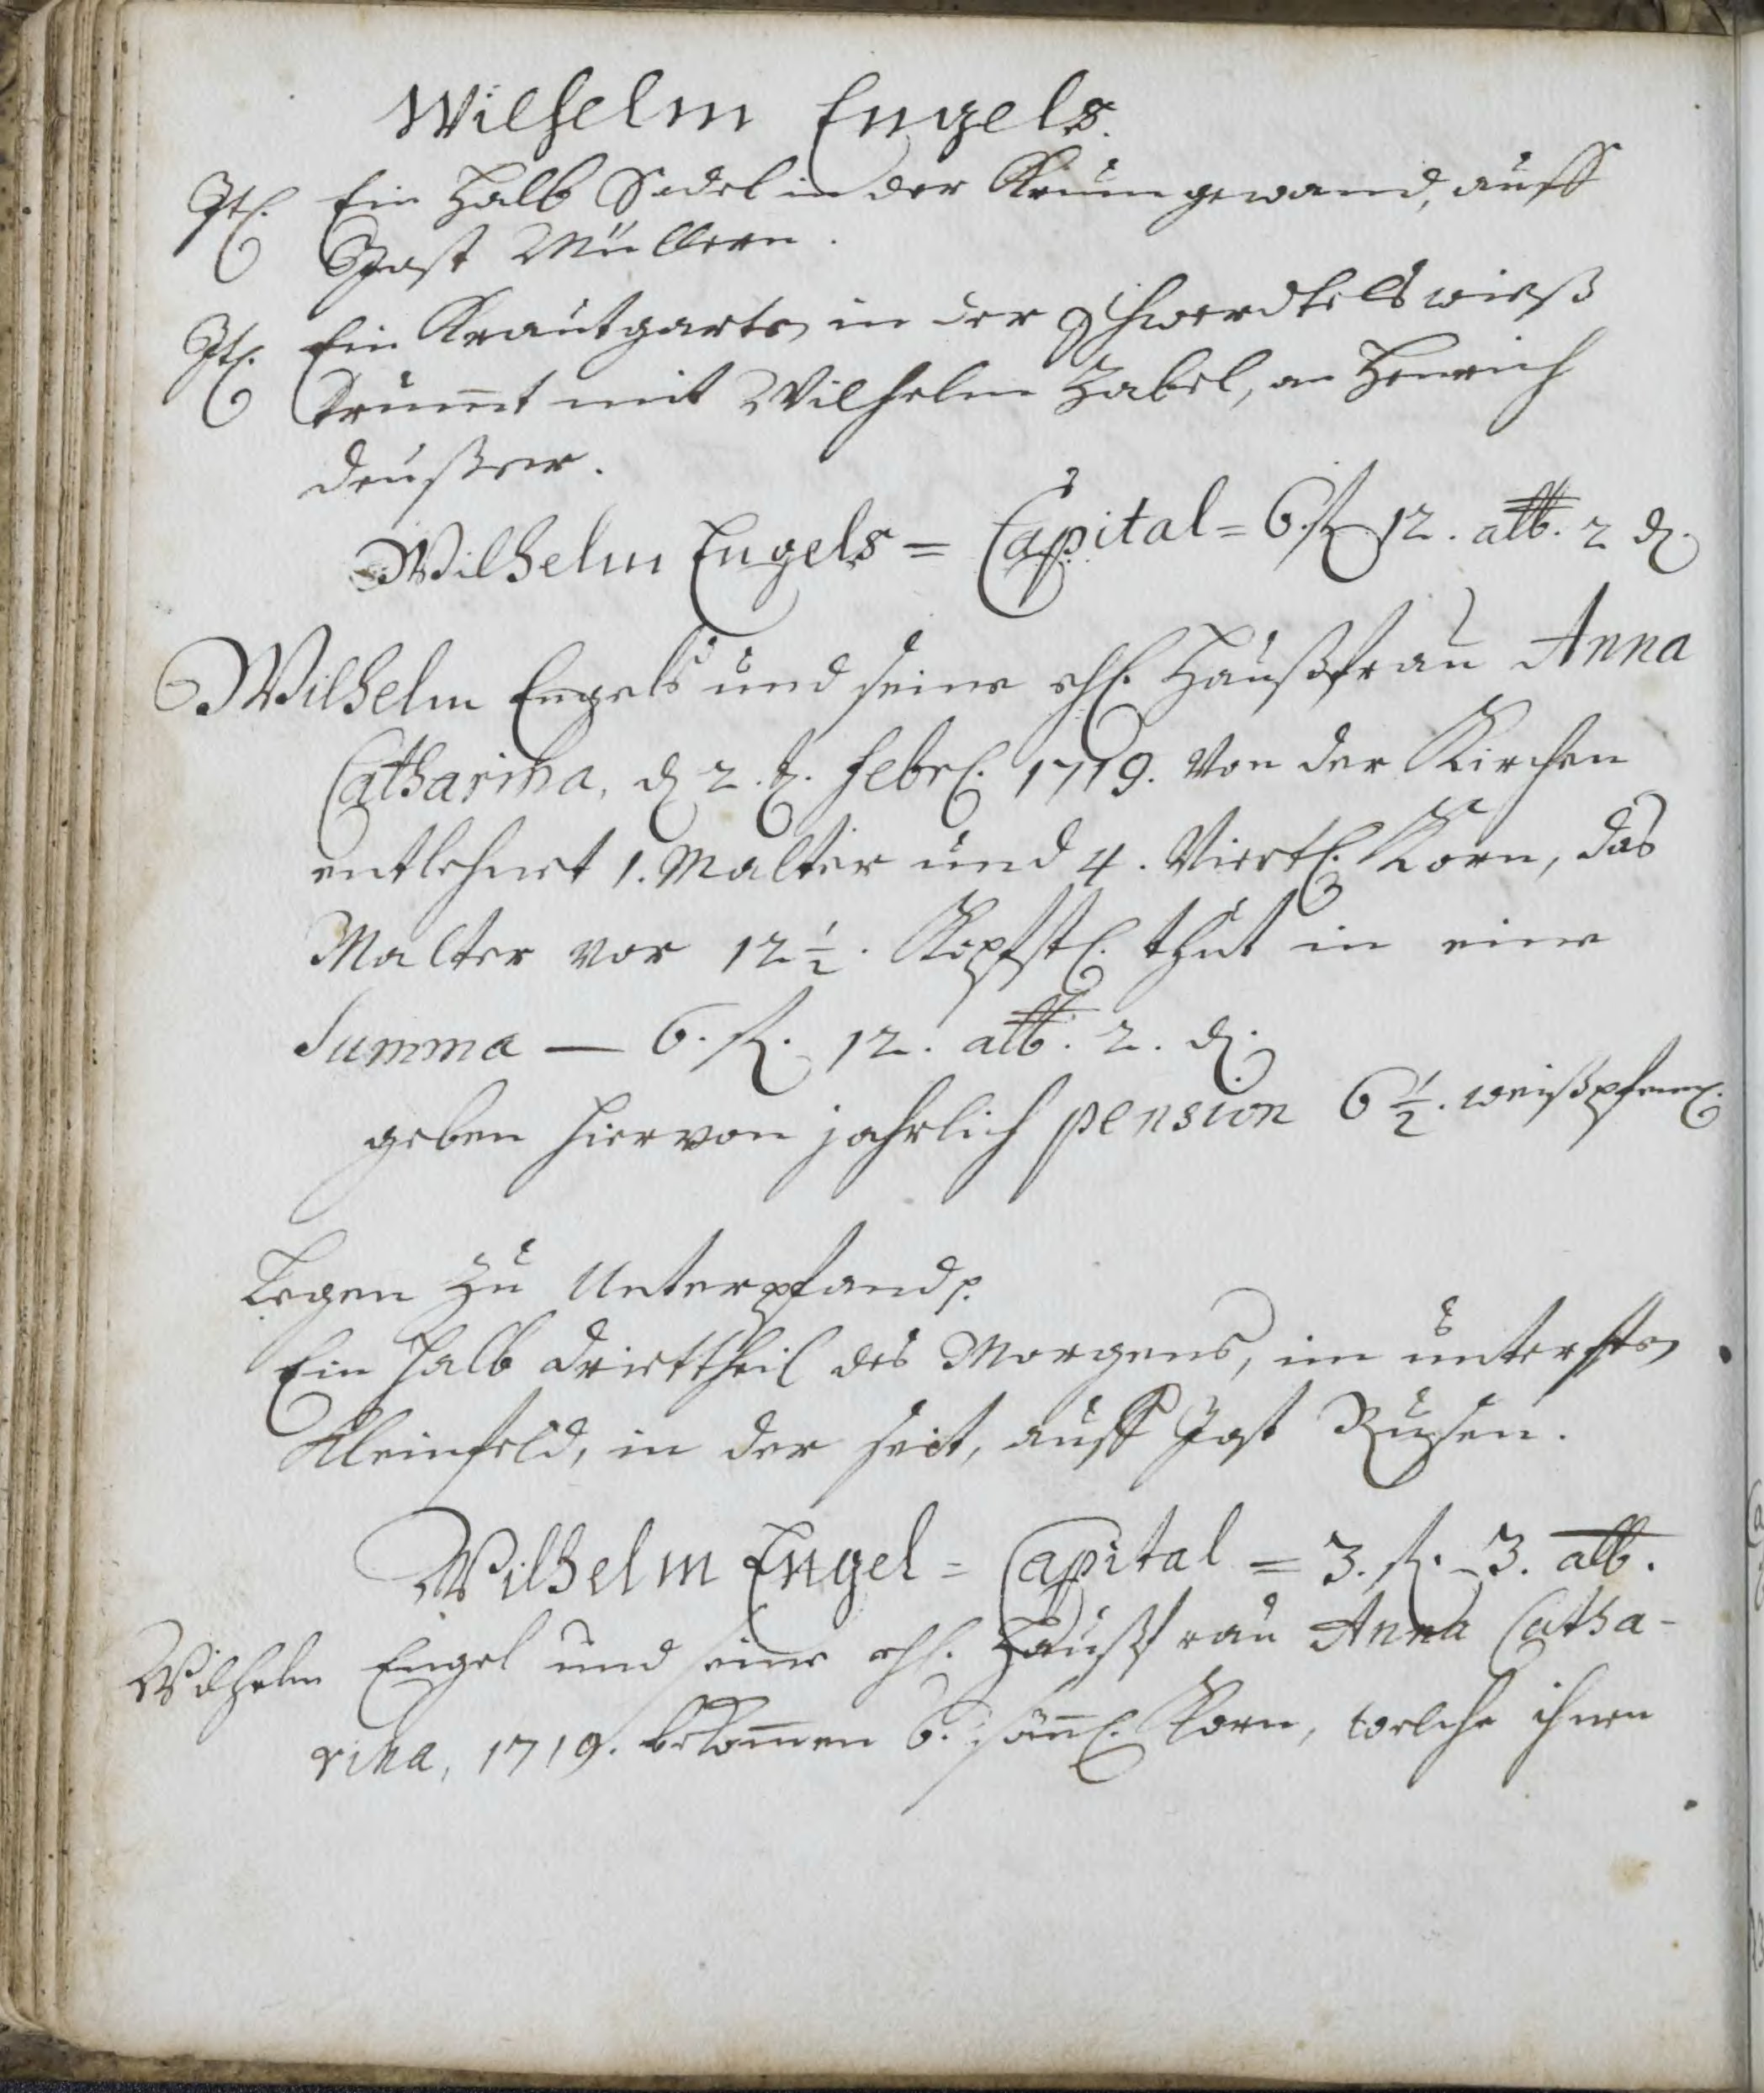 Wilhelm Engels.
It. Ein Halb Sedel in der Krumgewand, auff
Jost Müllern.
It. Ein Krautgarten in der Schwerdtelswieß
Krum̅t mit Wilhelm Zabel, an Henrich
Deußer.
Wilhelm Engels = Capital = 6. fl. 12. alb. 2 d.
Wilhelm Engels und seine ehl. Haußfrau Anna
Catharina, d 2. t. Febr. 1719. Von der Kirchen
entlehnet 1. Malter und 4. Viertl. Korn, das
Malter vor 12 1/2. Kopfst. thut in eine
Summa — 6. fl. 12. alb. 2. d.
geben hiervon jahrlich pension 6 1/2. weißpfen.
Legen zu Unterpfand.
Ein halb drietttheil des Morgens, im untersten
Kleinfeld, in der seit, auff Jost
Wilhelm Engel = Capital = 3. fl. 3. alb.
Wilhelm Engel und seine ehl. Haußfrau Anna Catha-
rina, 1719. bekom̅en 6. Korn, welche ihnen